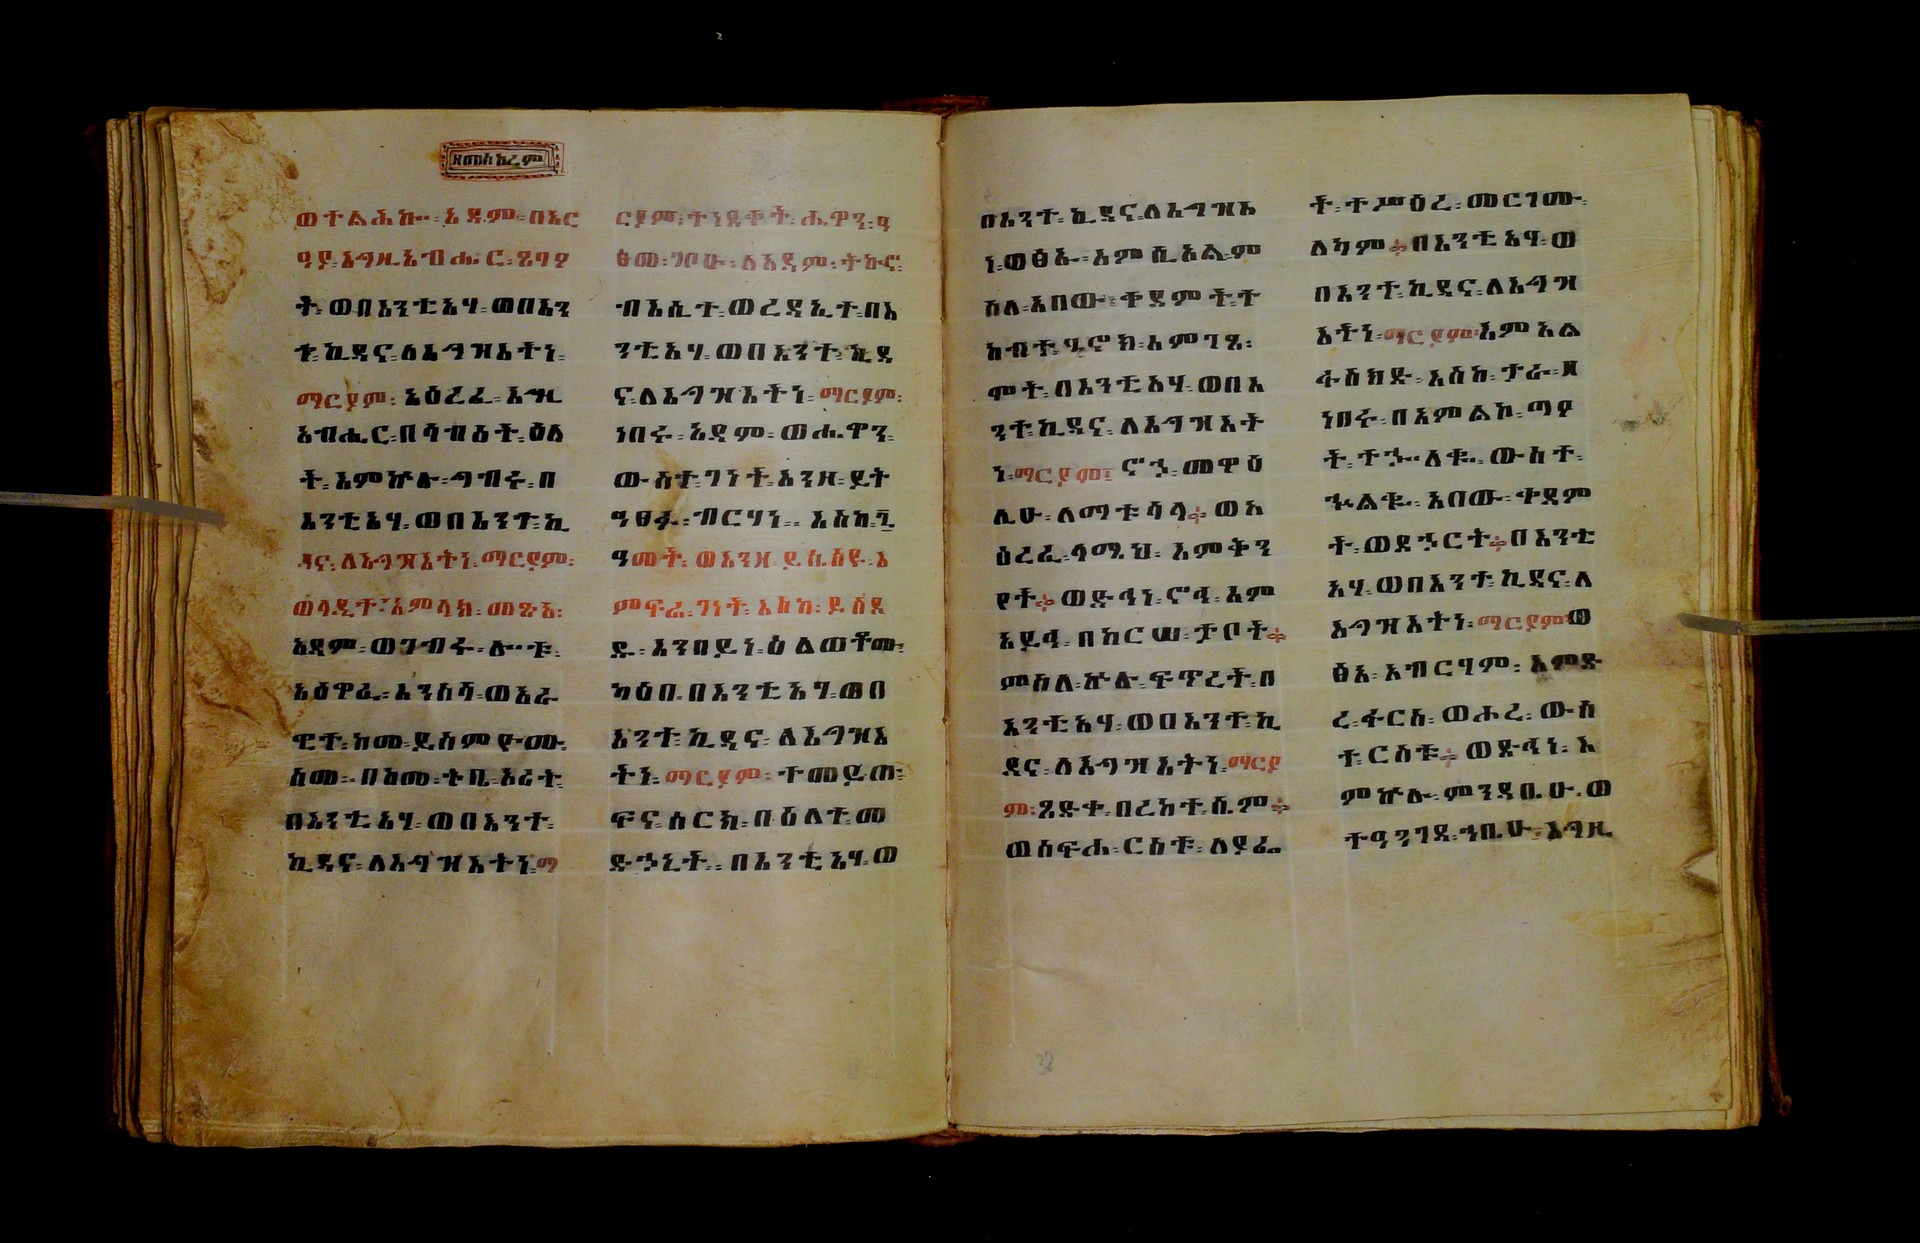 ዘመስከረም
ወተልሕኩ፡ አዳም፡ በአር
ዓያ፡ እግዚአብሔር፡ ጸባዖ
ት፡ ወበእንቲአሃ፡ ወበእን
ተ፡ ኪዳና፡ ለእግዝእትነ፡
ማርያም፡ አዕረፈ፡ እግዚ
አብሔር፡ በሳብዕት፡ ዕለ
ት፡ እምኵሉ፡ ግብሩ፡ በ
እንቲአሃ፡ ወበእንተ፡ ኪ
ዳና፡ ለእግዝእትነ፡ ማርያም፡
ወላዲተ፡ አምላክ፡ መጽአ፡
አዳም፡ ወገብሩ፡ ሎቱ፡
አዕዋፈ፡ እንስሳ፡ ወአራ
ዊተ፡ ከመ፡ ይስምዮሙ፡
ስመ፡ በስመ፡ ተቢ፡ አሪት፡
በእንቲአሃ፡ ወበእንተ፡
ኪዳና፡ ለእግዝእትነ፡ ማ
ርያም፡ ተነድቀት፡ ሔዋን፡ ዓ
ፅመ፡ ገቦሁ፡ ለአዳም፡ ትኩና፡
ብእሲተ፡ ወረዳኢተ፡ በእ
ንቲአሃ፡ ወበእንተ፡ ኪዳ
ና፡ ለእግዝእትነ፡ ማርያም፡
ነበሩ፡ አዳም፡ ወሔዋን፡
ውስተ፡ ገነት፡ እንዘ፡ ይት
ዓፀፉ፡ ብርሃነ፡ እስከ፡ ፯
ዓመት፡ ወእንዘ፡ ይሴሰዩ፡ እ
ምፍሬ፡ ገነት፡ እስከ፡ ይሰደ
ዱ፡ እንበይነ፡ ዕልወቶሙ፡
ካዕበ፡ በእንቲአሃ፡ ወበ
እንተ፡ ኪዳና፡ ለእግዝእ
ትነ፡ ማርያም፡ ተመይጠ፡
ፍና፡ ሰርክ፡ በዕለተ፡ መ
ድኃኒት፡ በእንቲአሃ፡ ወ
በእንተ፡ ኪዳና፡ ለእግዝእ
ነ፡ ወፅአ፡ እምሲኦል፡ ም
ስለ፡ አበው፡ ቀደምት፡ ተ
ከብተ፡ ሄኖክ፡ እምገጸ፡
ሞት፡ በእንቲአሃ፡ ወበእ
ንተ፡ ኪዳና፡ ለእግዝእት
ነ፡ ማርያም፡ ኖኅ፡ መዋዕ
ሊሁ፡ ለማቱሳላ፡ ወአ
ዕረፈ፡ ላሜህ፡ እምቅን
የት፡ ወድኅነ፡ ኖኅ፡ እም
አይኅ፡ በከርሠ፡ ታቦት፡
ምስለ፡ ኵሉ፡ ፍጥረት፡ በ
እንቲአሃ፡ ወበእንተ፡ ኪ
ዳና፡ ለእግዝእትነ፡ ማርያ
ም፡ ጸድቀ፡ በረከተ፡ ሴም፡
ወሰፍሐ፡ ርስቱ፡ ለያፌ
ት፡ ተሥዕረ፡ መርገሙ፡
ለካም፡ በእንቲአሃ፡ ወ
በእንተ፡ ኪዳና፡ ለእግዝ
እትነ፡ ማርያም፡ እምአል
ፋስክድ፡ እስከ፡ ታራ፡ ዘ
ነበሩ፡ በአምልኮ፡ ጣዖ
ት፡ ተኃለቁ፡ ውስተ፡
ኍልቁ፡ አበው፡ ቀደም
ት፡ ወደኃርት፡ በእንቲ
አሃ፡ ወበእንተ፡ ኪዳና፡ ለ
እግዝእትነ፡ ማርያም፡ ወ
ፅአ፡ አብርሃም፡ እምድ
ረ፡ ፋርስ፡ ወሖረ፡ ውስ
ተ፡ ርስቱ፡ ወድኅነ፡ እ
ምኵሉ፡ ምንዳቤሁ፡ ወ
ተዓንገደ፡ ኀቤሁ፡ እግዚ